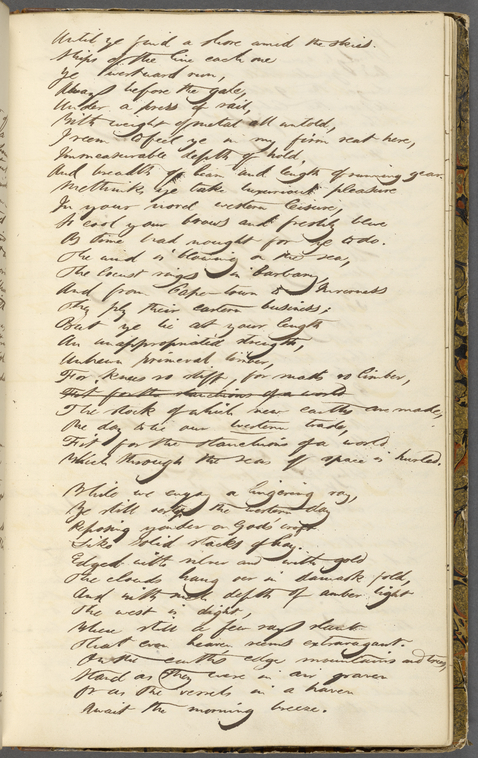 Until ye find a shore amid the skies.
Ships of the line each one
Ye westward run,
Always before the gale,
Under a press of sail,
With weight of metal all untold,
I seem to feel ye in my firm seat here,
Immeasurable depth of hold,
And breadth of beam and length of running gear.
Methinks ye take luxurious pleasure
In your novel western leisure,
So cool your brows and freshly blue
As Time had nought for ye to do.
The wind is blowing on the sea,
The locust sings in Barbary,
And from Cape-town to Inverness
They ply their eastern business;
But ye lie at your length
An unappropriated strength,
Unhewn primeval timber,
For knees so stiff, for masts so limber,
Fit for the stanchions of a world
The stock of which new earths are made,
One day to be our western trade,
Fit for the stanchions of a world
Which through the seas of space is hurled.
While we enjoy a lingering ray,
Ye still the western day
Reposing yonder on God's croft
Like solid stacks of hay.
Edged with silver and with gold
The clouds hang over in damask fold,
And with such depth of amber light
The west is dight,
Where still a few rays slant
That even heaven seems extravagant.
On the earth's edge mountains and trees
Stand as they were on air graven
Or as the vessels in a haven
Await the morning breeze.